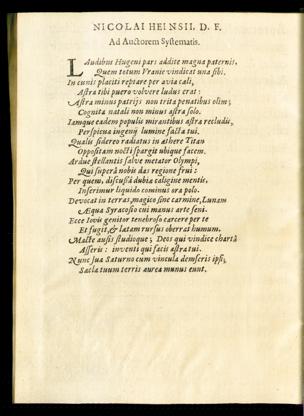 NICOLAI HEINSII, D. F.
Ad Auctorem Systematis.
LAudibus Hugeni pars addite magna paternis,
Quem totum Vranie vindicat una sibi.
In cunis placiti reptare per avia cæli,
Astra tibi puero volvere ludus erat:
Astra minus patrijs non trita penatibus olim;
Cognita natali non minus astra solo.
Iamque eadem populis mirantibus astra recludis,
Perspicua ingenij lumine facta tui.
Qualis sidereo radiatus in æthere Titan
Oppositam nocti spargit ubique facem.
Ardue stellantis salve metator Olympi,
Qui superâ nobis das regione frui:
Per quem, discussâ dubiæ caligine mentis,
Inserimur liquido cominus ora polo.
Devocat in terras, magico sine carmine, Lunam
Æqua Syracosio cui manus arte seni.
Ecce Iovis genitor tenebroso carcere per te
Et fugit, & latam rursus oberrat humum.
Macte ausis studioque; Deos qui vindice chartâ
Asseris: inventi qui facis astra tui.
Nunc sua Saturno cum vincula demseris ipsi;
Sæcla tuum terris aurea munus eunt.